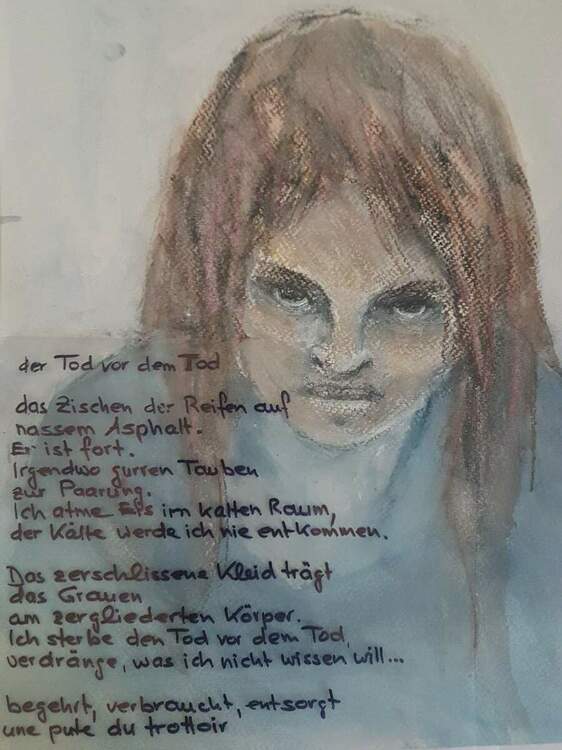 der Tod vor dem Tod
das Zischen der Reifen auf
nassem Asphalt.
Er ist fort.
Irgendwo gurren Tauben
zur Paarung.
Ich atme Eis im kalten Raum,
der Kälte werde ich nie entkommen.
Das zerschlissene Kleid trägt
das Grauen
am zergliederten Körper.
Ich sterbe den Tod vor dem Tod,
verdränge, was ich nicht wissen will...
begehrt, verbraucht, entsorgt
une pute du trottoir